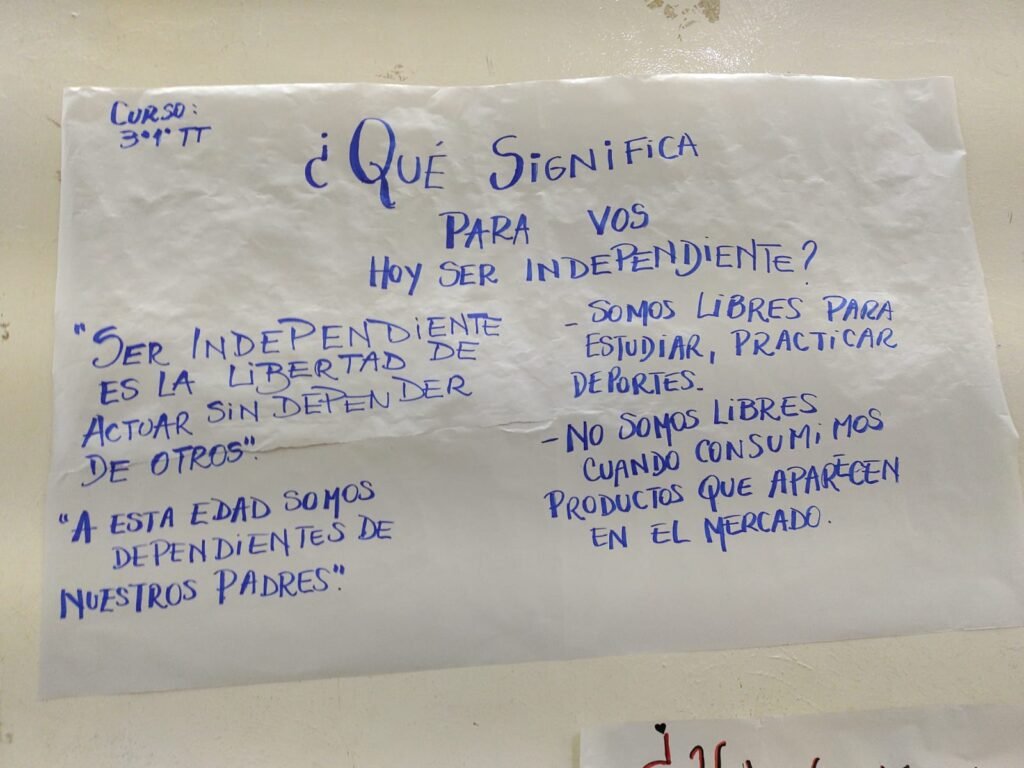 CURSO:
3°1° TT
¿QUÉ SIGNIFICA
PARA VOS
HOY SER INDEPENDIENTE?
"SER INDEPENDIENTE
ES LA LIBERTAD DE
ACTUAR SIN DEPENDER
DE OTROS".
"A ESTA EDAD SOMOS
DEPENDIENTES DE
NUESTROS PADRES".
- SOMOS LIBRES PARA
ESTUDIAR, PRACTICAR
DEPORTES.
- NO SOMOS LIBRES
CUANDO CONSUMIMOS
PRODUCTOS QUE APARECEN
EN EL MERCADO.